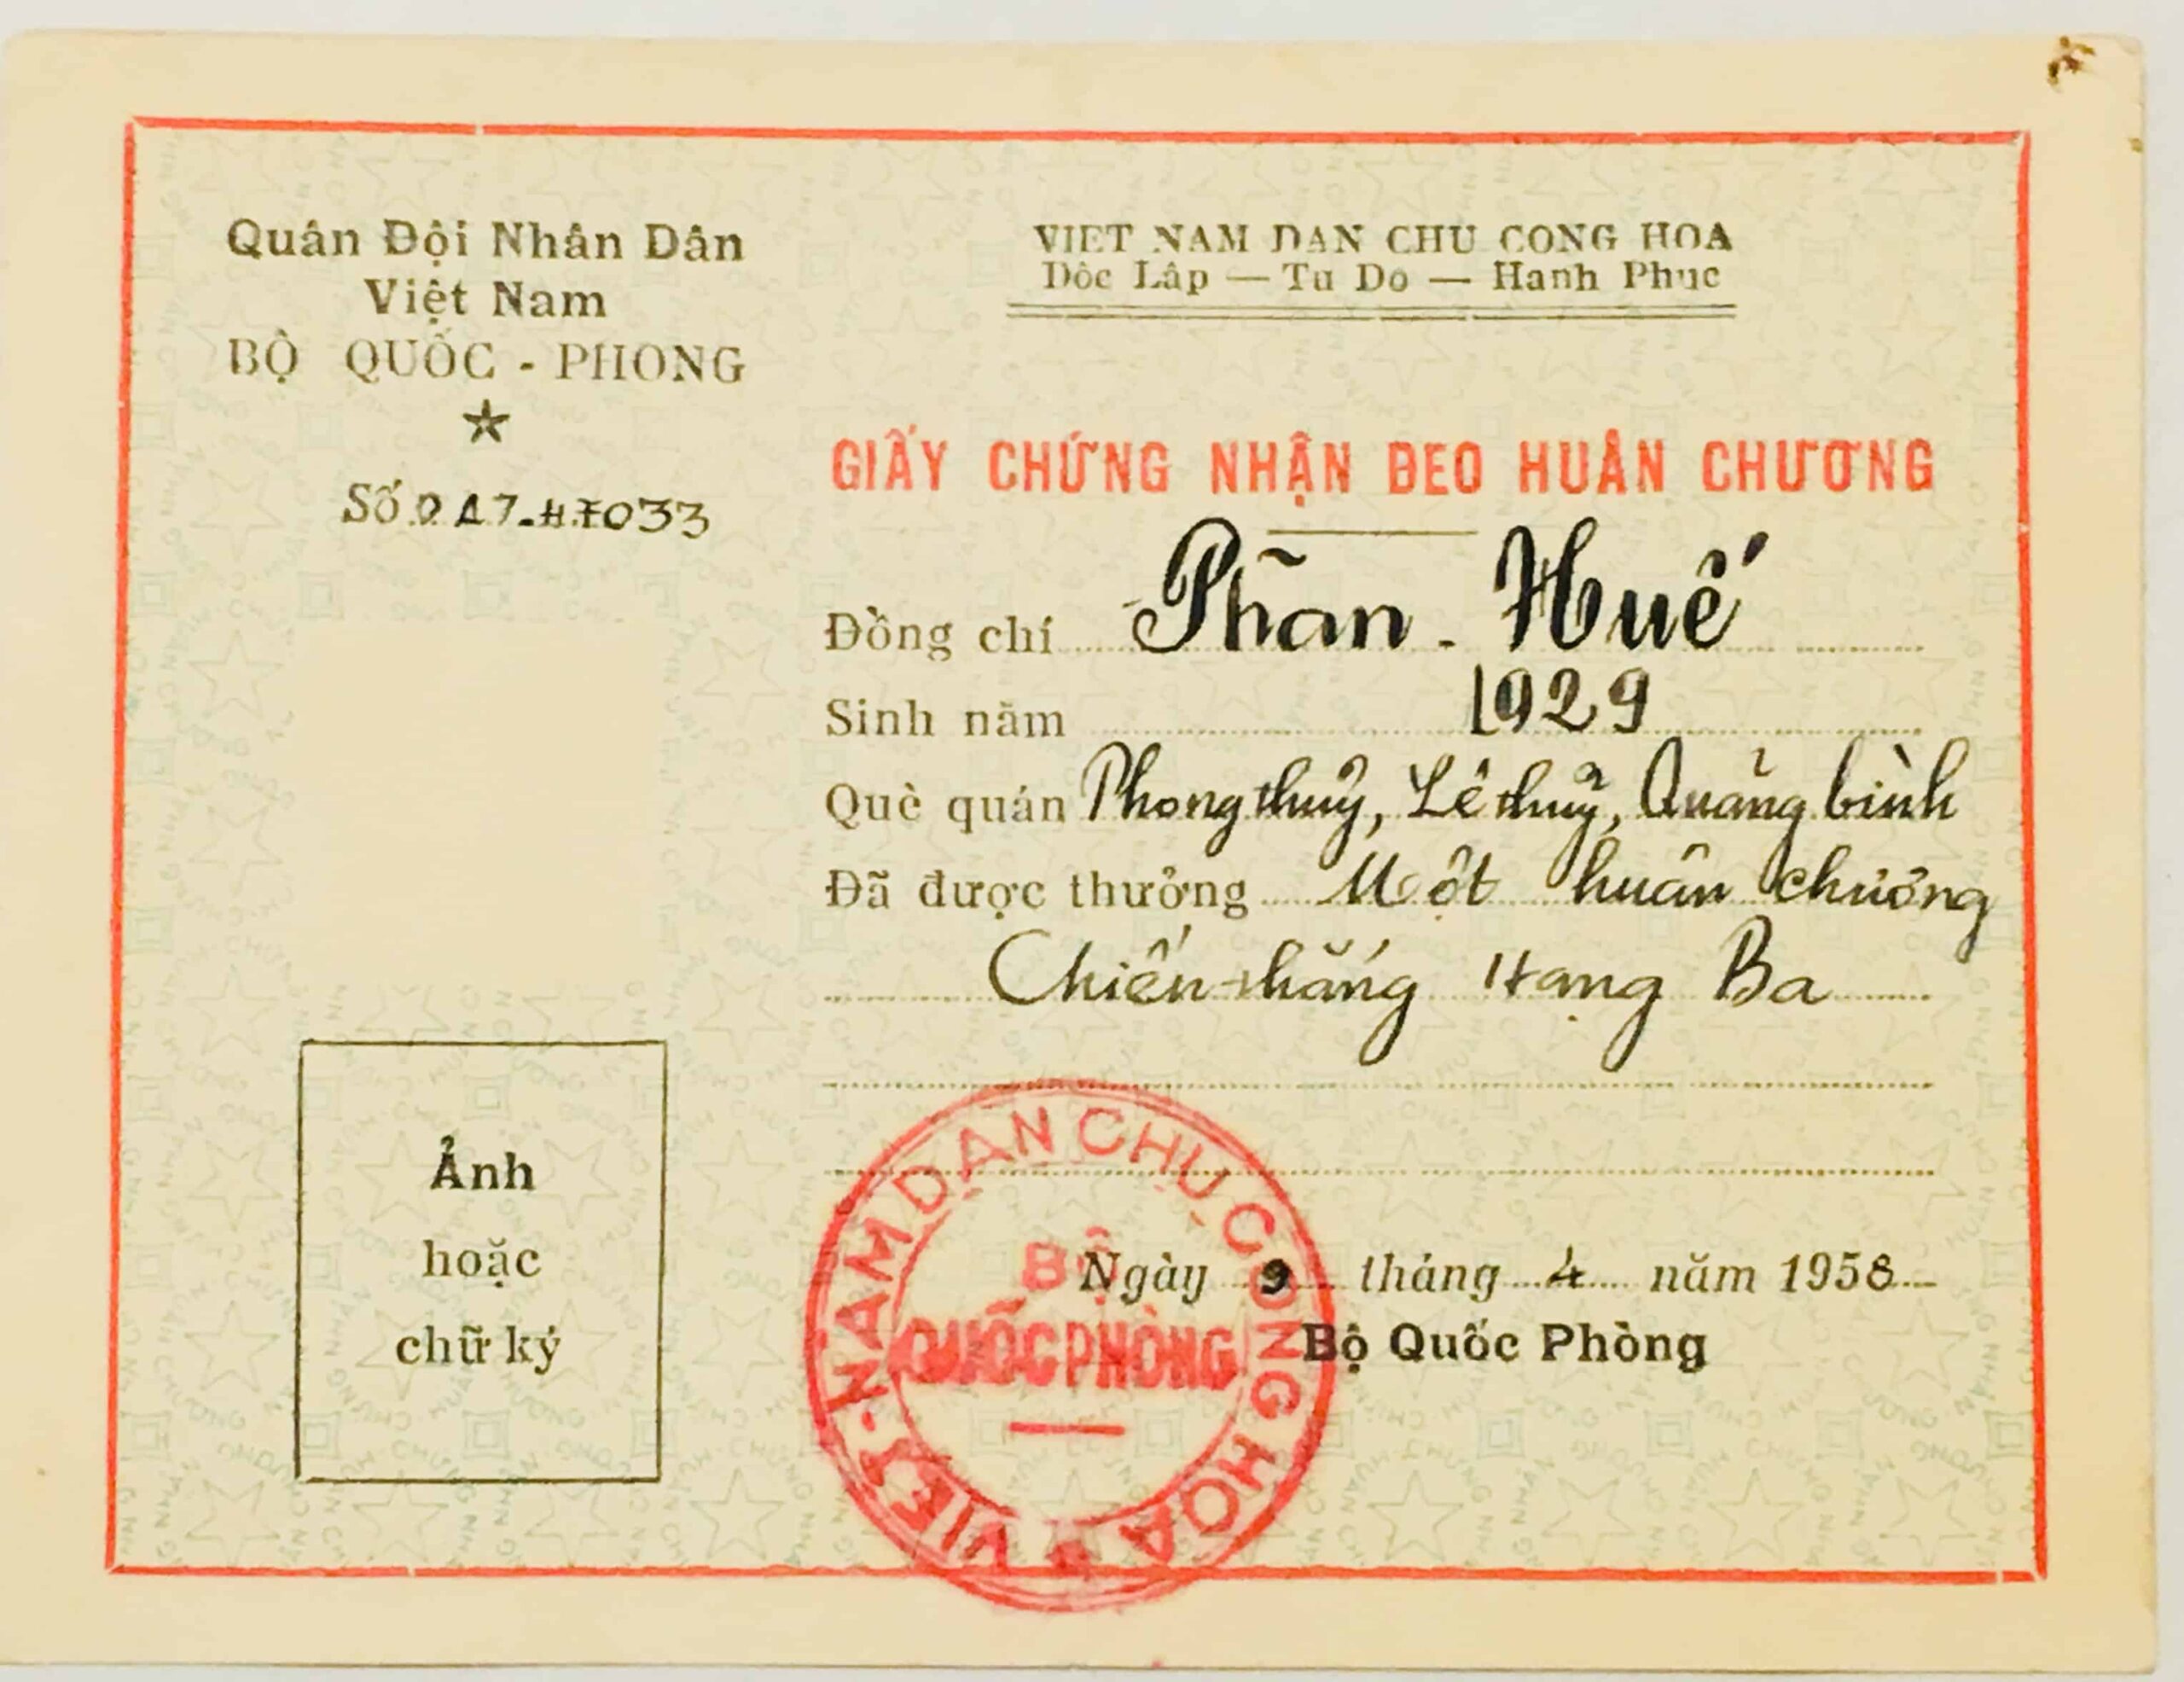 Quân Đội Nhân Dân
Việt Nam
BỘ QUỐC - PHONG
VIET NAM DAN CHU CONG HOA
Dôc Lâp — Tu Do — Hanh Phuc
GIẤY CHỨNG NHẬN ĐEO HUÂN CHƯƠNG
Đồng chí Phãn - Huế
Sinh năm 1929
Quê quán Phong thuỷ, Lê thuỷ, Quảng bình
Đã được thưởng Một huân chương
Chiến thắng Hạng Ba
Ảnh
hoặc
chữ ký
Ngày 9 tháng 4 năm 1958
Bộ Quốc Phòng
VIỆT-NAM DÂN CHỦ CỘNG HOA
BỘ
QUỐC PHÒNG